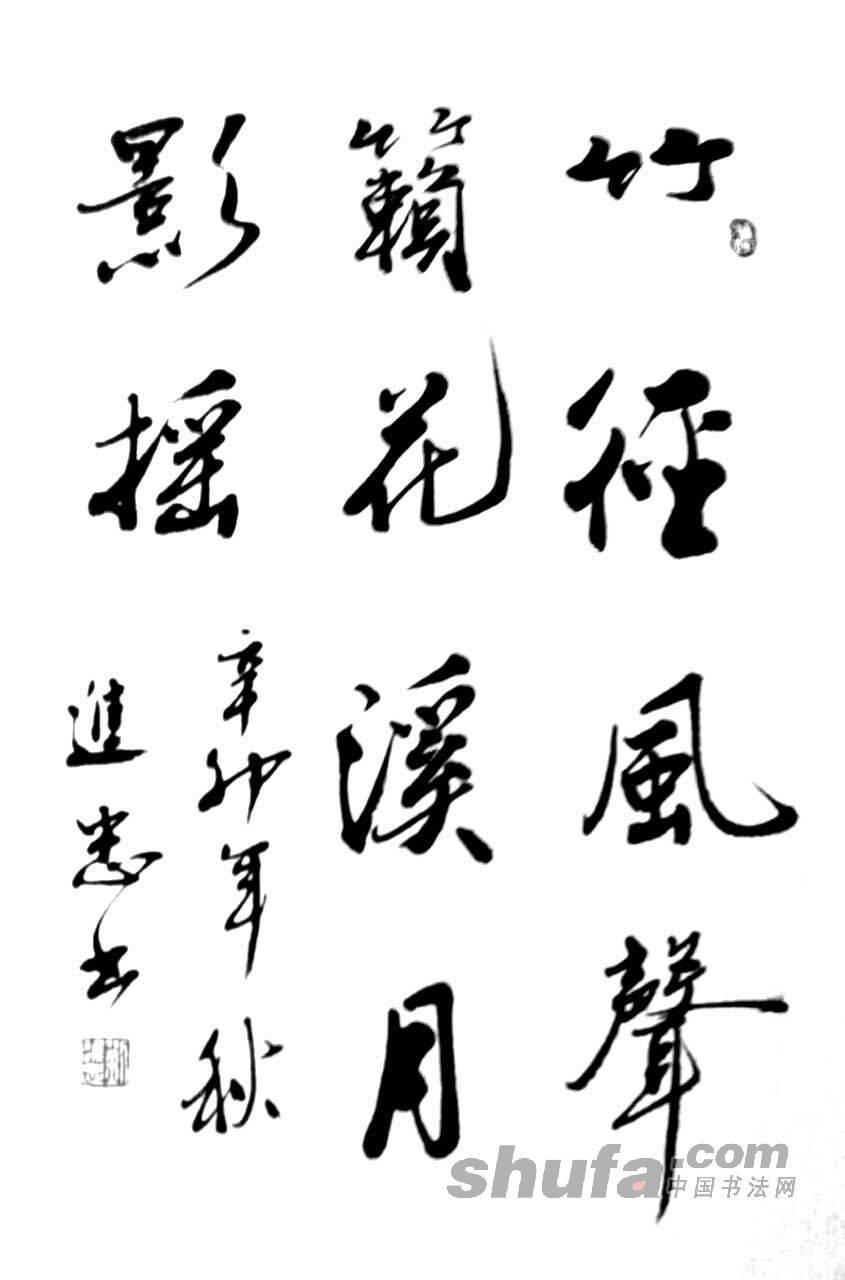 竹徑風聲
籟花溪月
影摇
辛卯年秋
進忠书
shufa.com
中国书法网